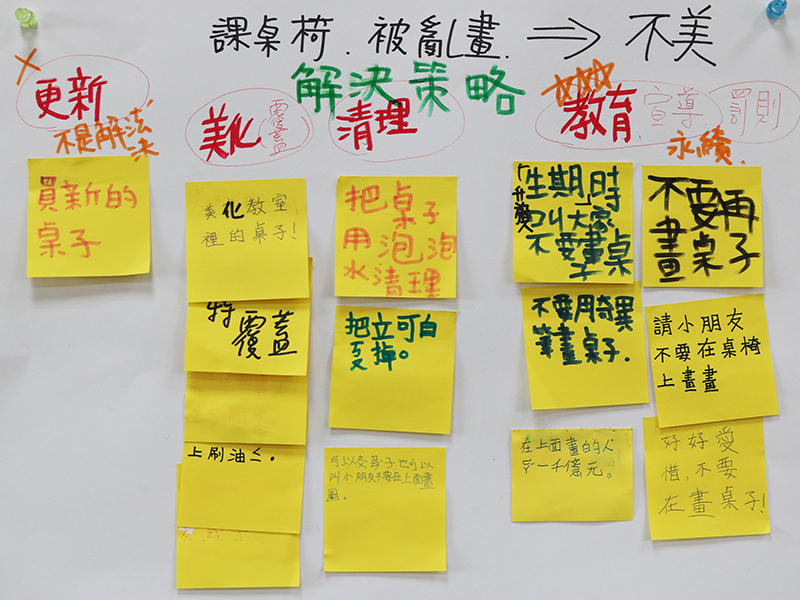 課桌椅.被亂畫. ⇒ 不美
解決策略
更新
不是解法
美化
覆蓋
清理
教育
宣導
罰則
永續.
買新的
桌子
美化教室
裡的桌子!
覆蓋
上刷油ㄑ。
把桌子
用泡泡
水清理
把立可白
掉。
可以
也可以
叫小朋友不要在上面畫
圖。
生期時
叫大家
不要畫桌
不要用奇異
筆畫桌子.
在上面畫的人
一千億元。
不要再
畫桌子
請小朋友
不要在桌椅
上畫畫
好好愛
惜,不要
在畫桌子!